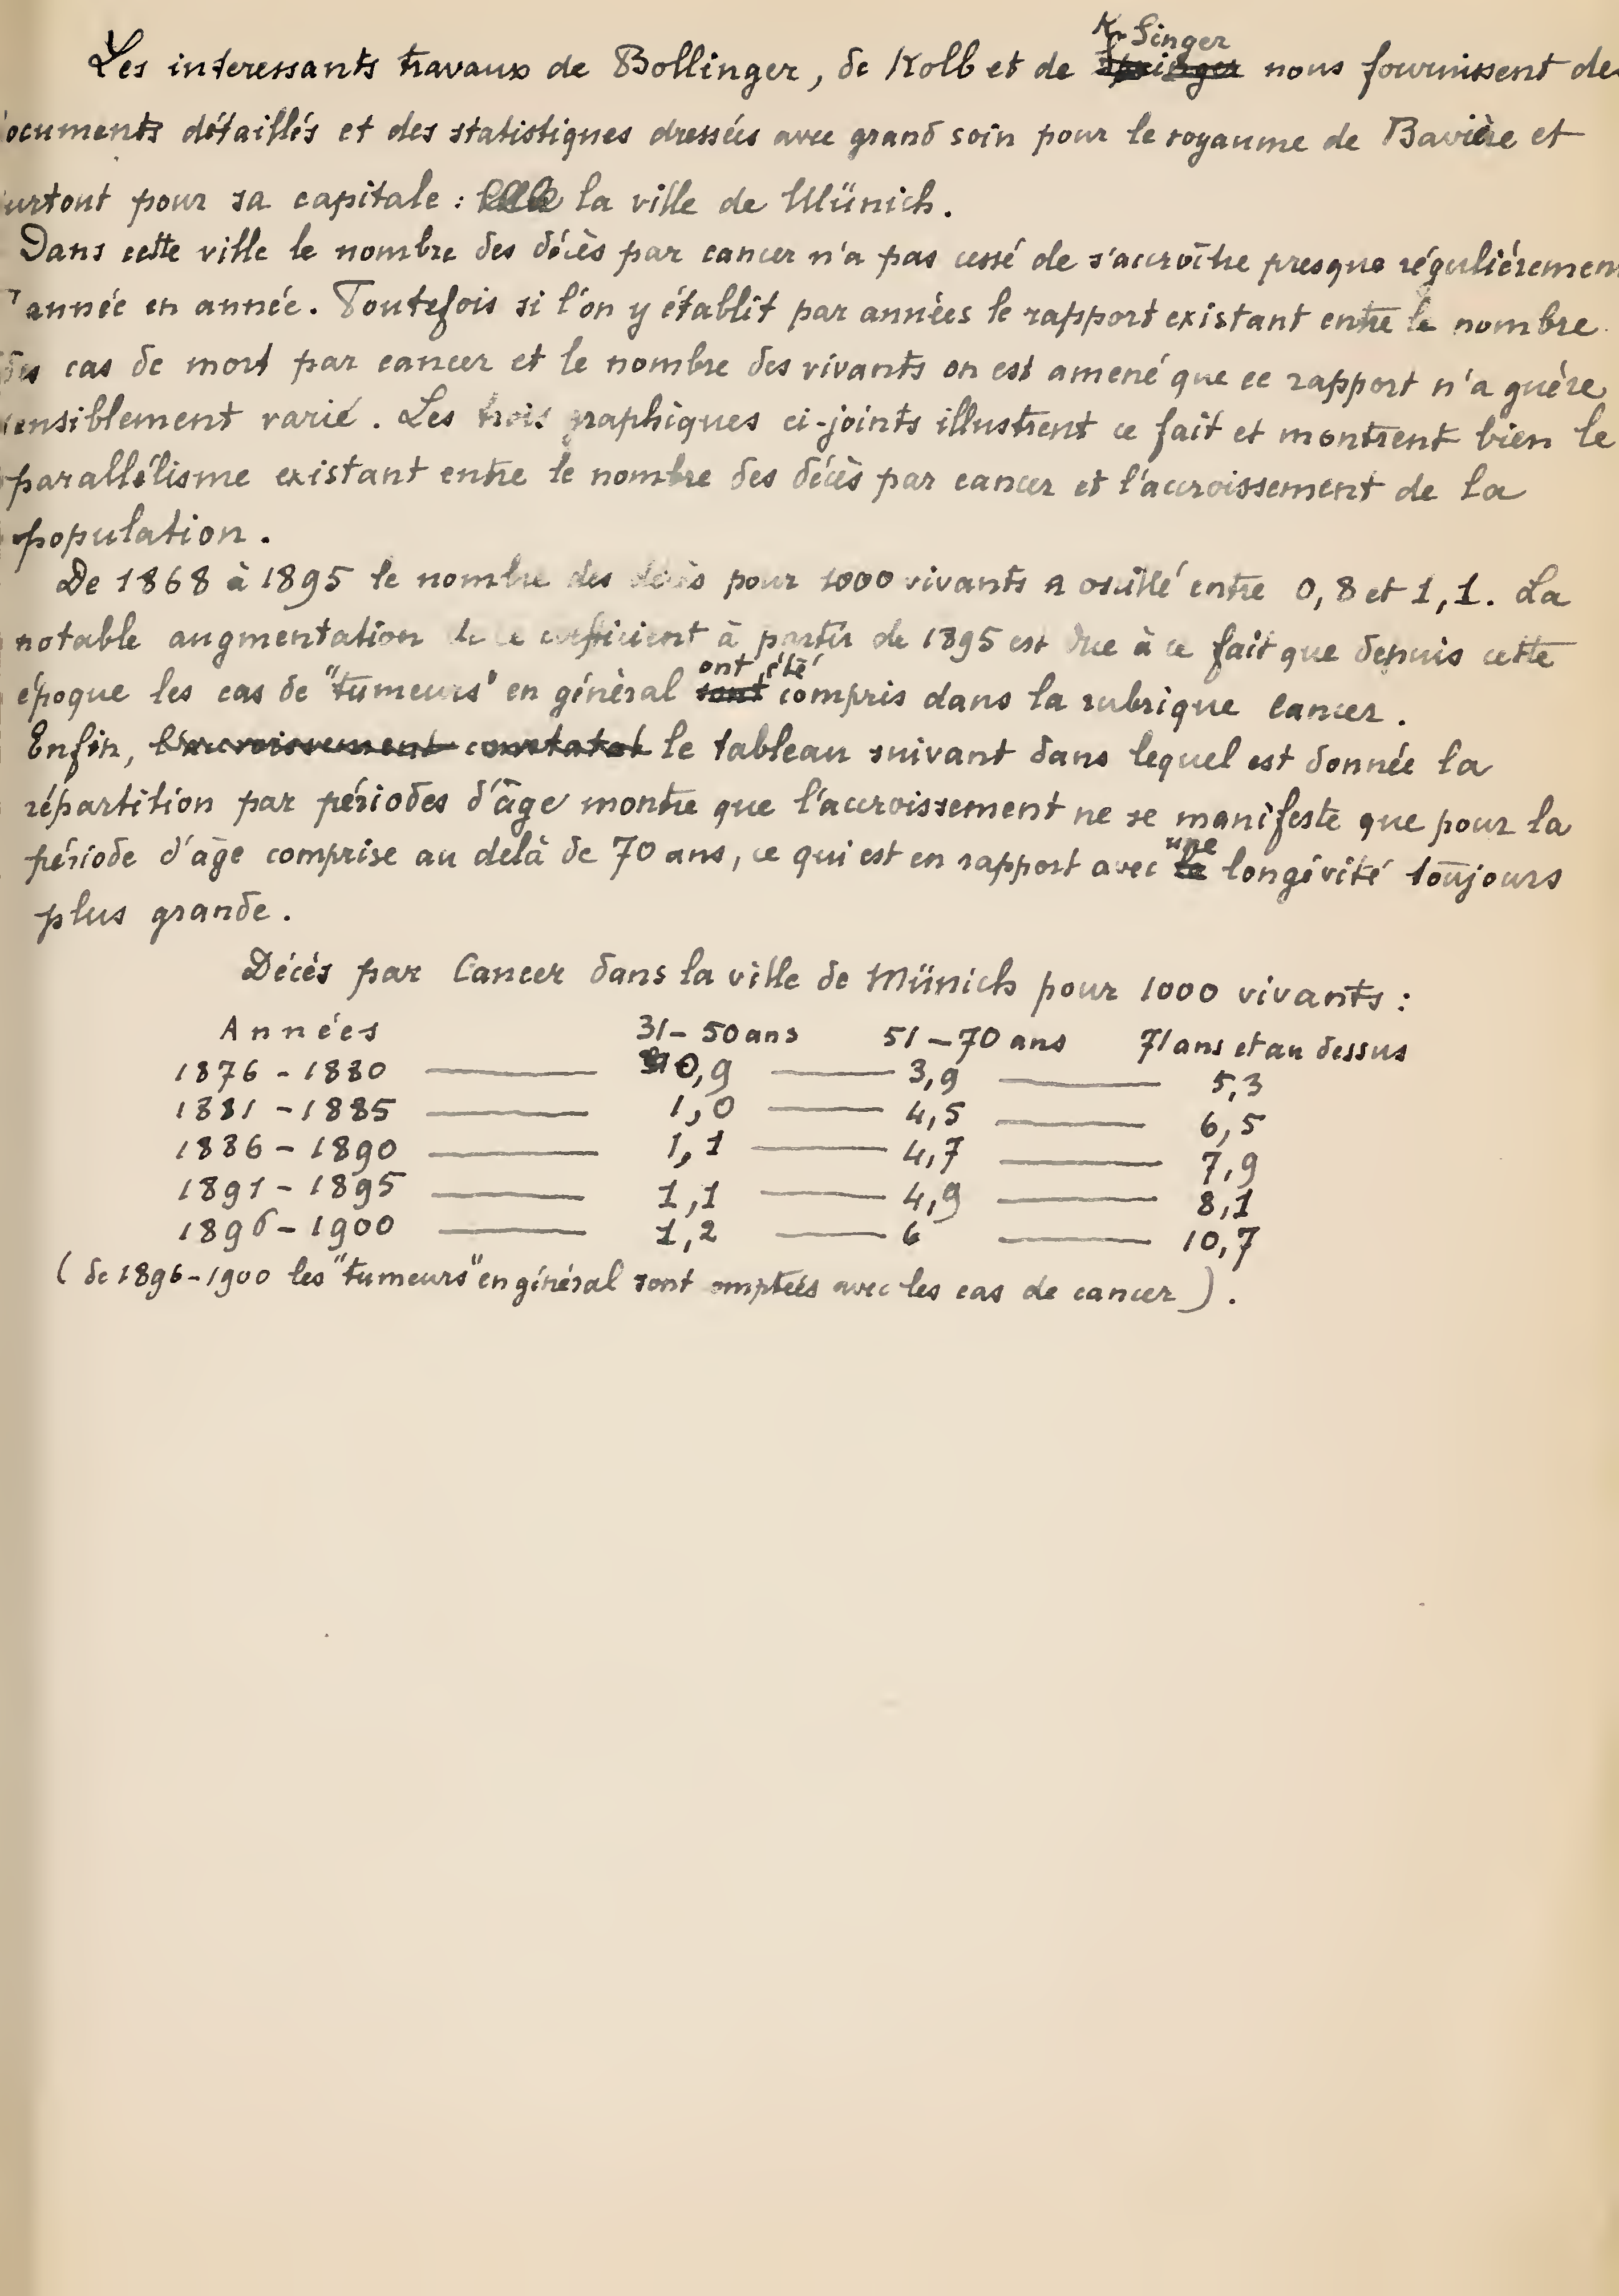 Les interessants travaux de Bollinger, de Kolb et de K. Singer nous fournissent de
ocuments détaillés et des statistiques dressées avec grand soin pour le royaume de Bavière et
urtout pour sa capitale : la ville de Münich.
Dans cette ville le nombre des décès par cancer n'a pas cessé de s'accroître presque réguliérement
année en année. Toutefois si l'on y établit par années le rapport existant entre le nombre
des cas de mort par cancer et le nombre des vivants on est amené que ce rapport n'a guère
ensiblement varié. Les trois graphiques ci-joints illustrent ce fait et montrent bien le
parallélisme existant entre le nombre des décès par cancer et l'accroissement de la
population.
De 1868 à 1895 le nombre des décès pour 1000 vivants a oscillé entre 0,8 et 1,1. La
notable augmentation de ce coefficient à partir de 1895 est due à ce fait que depuis cette
époque les cas de "tumeurs" en général ont été compris dans la rubrique cancer.
Enfin, l'accroissement constaté le tableau suivant dans lequel est donnée la
répartition par périodes d'âge montre que l'accroissement ne se manifeste que pour la
période d'âge comprise au delà de 70 ans, ce qui est en rapport avec une longévité toujours
plus grande.
Décés par Cancer dans la ville de Münich pour 1000 vivants :
Années 31-50 ans 51-70 ans 71 ans et au dessus
1876-1880 —— 0,9 —— 3,9 —— 5,3
1881-1885 —— 1,0 —— 4,5 —— 6,5
1886-1890 —— 1,1 —— 4,7 —— 7,9
1891-1895 —— 1,1 —— 4,9 —— 8,1
1896-1900 —— 1,2 —— 6 —— 10,7
(de 1896-1900 les "tumeurs" en général sont comptées avec les cas de cancer).